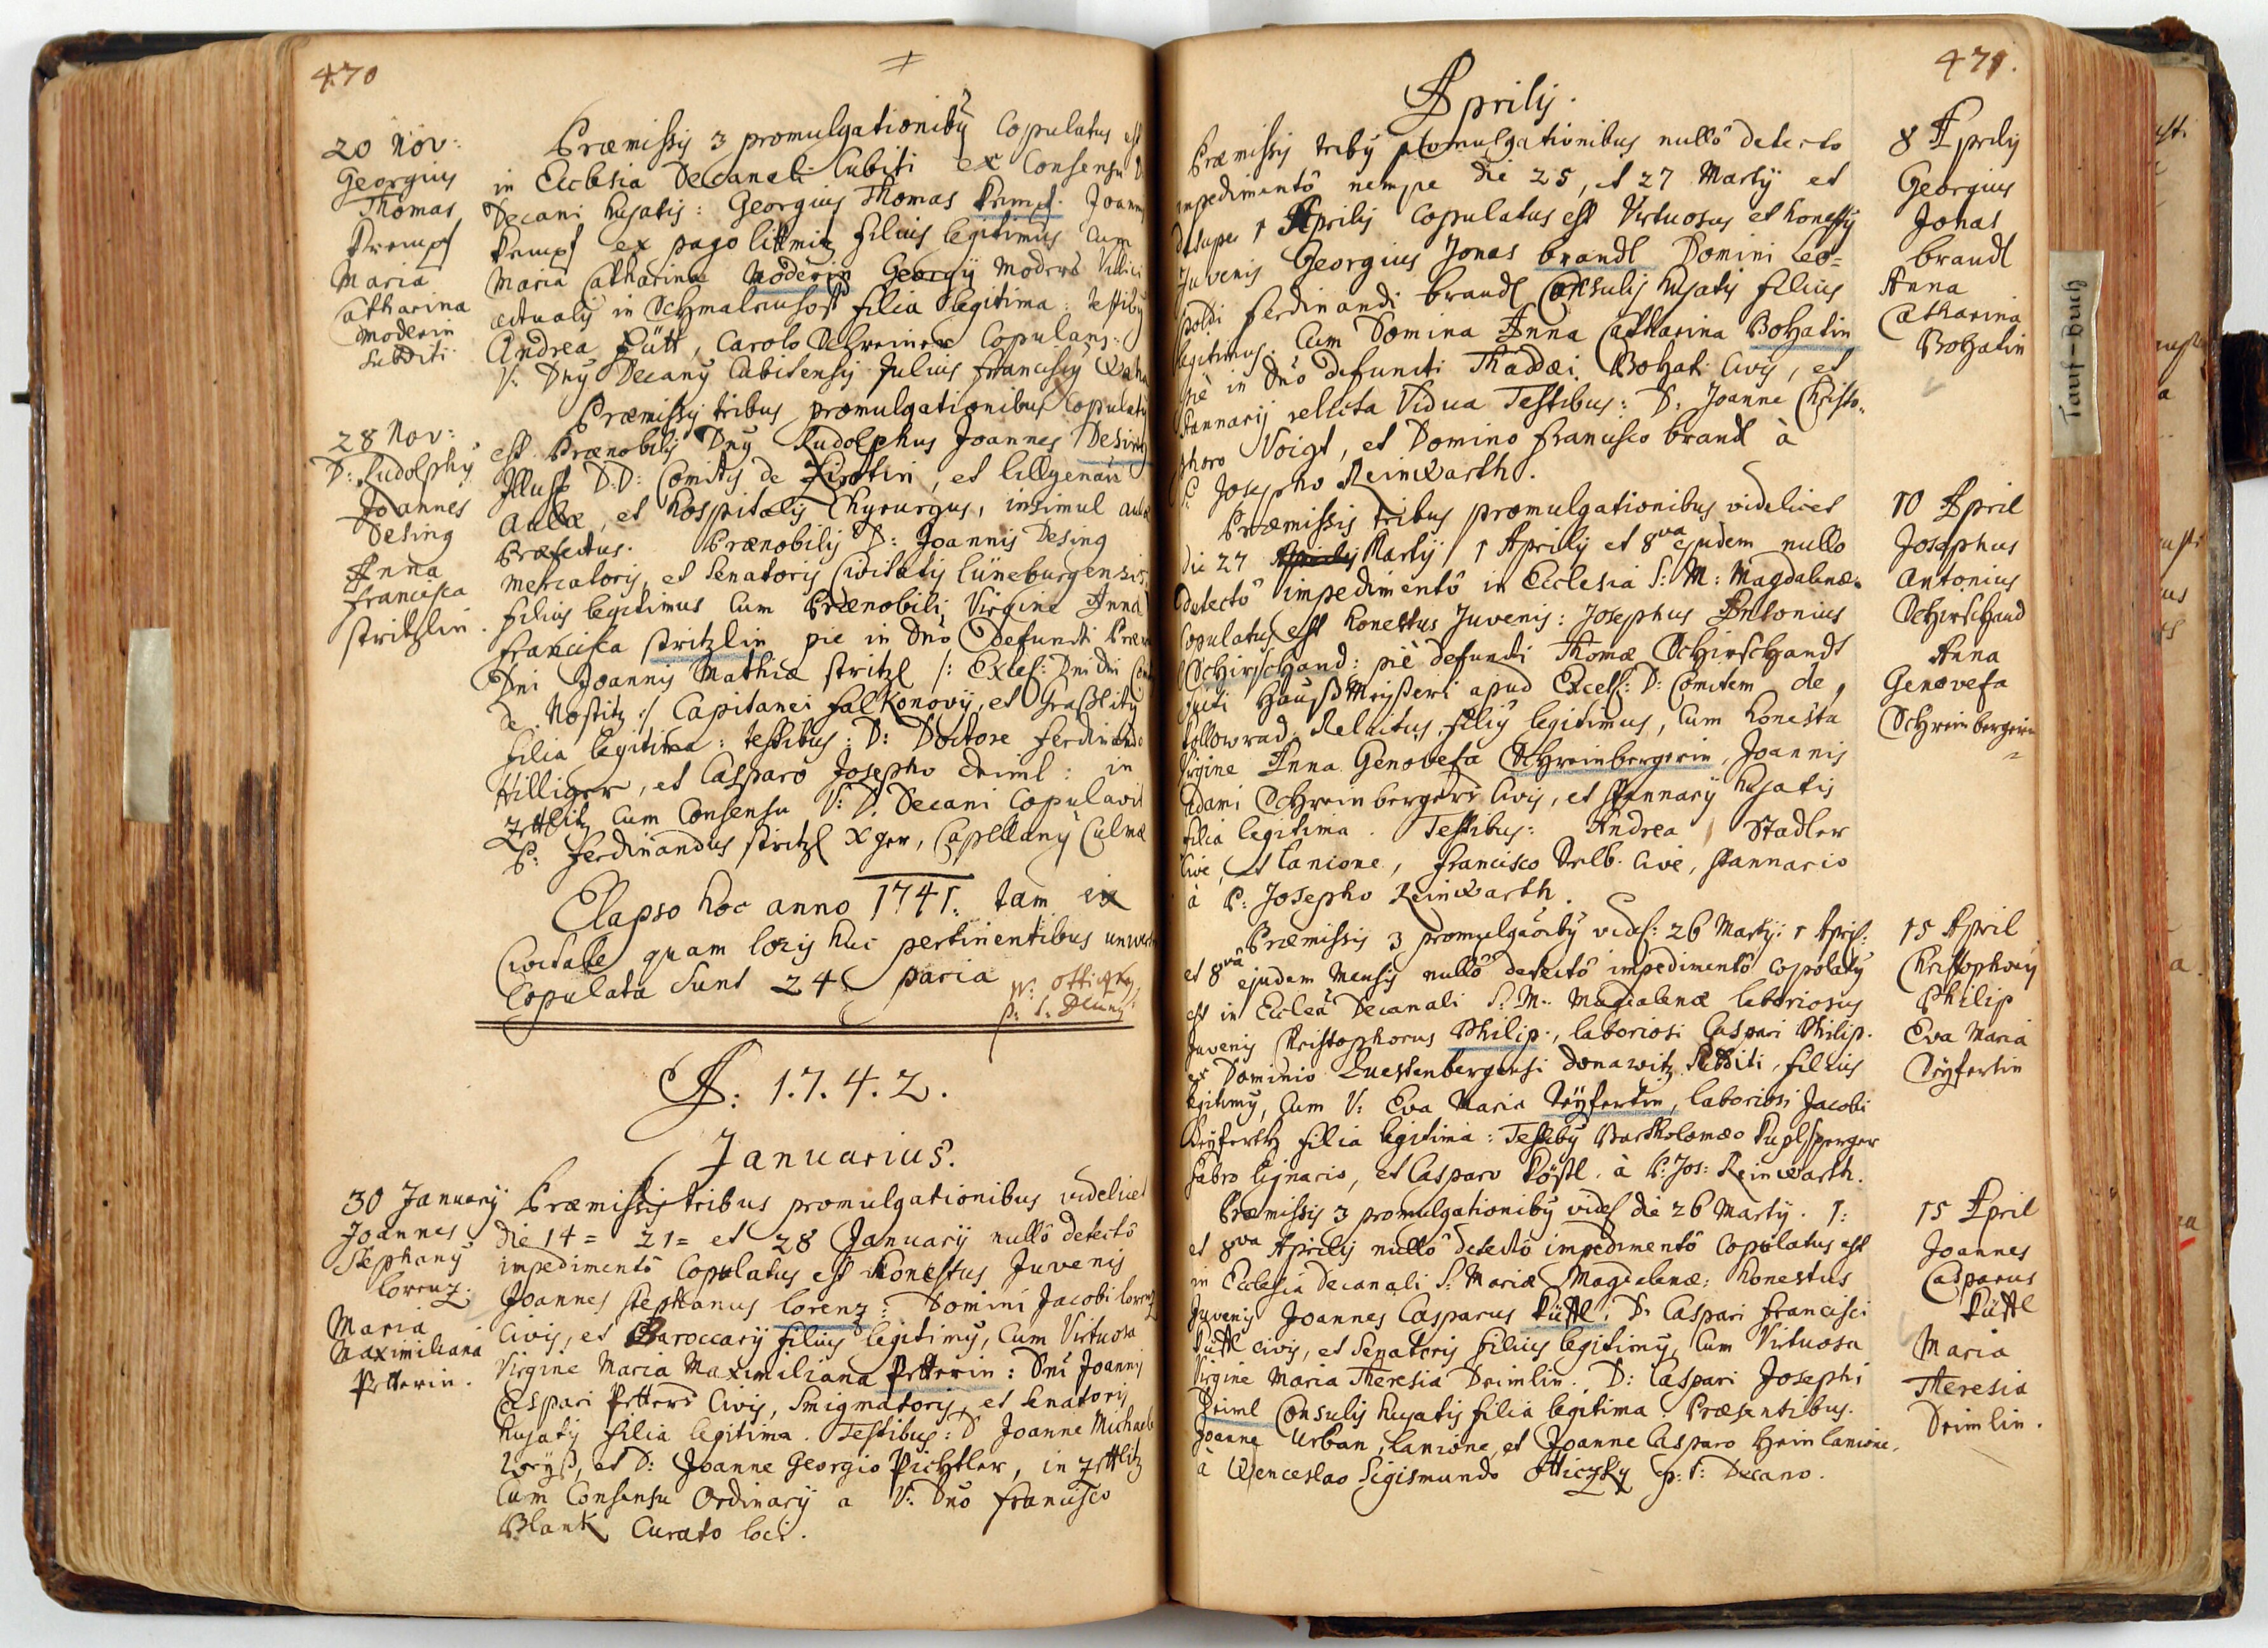 470
20 Nov:
Georgius
Thomas
Krempf
Maria
Catharina
Moderin
Subditi
Præmissis 3 promulgationiby Copulatus est
in Ecclesia Decanali Cubiti ex Consensu
Decani hujatis: Georgius Thomas Joann
ex pago filius legitimus Cum
Maria Catharina Moderin Georgÿ Moders Villici
actualis in filia legitima: testiby
Andrea Carolo Schreiner Copulans:
V: Dny Decany Cubitensis Julius Francisc9
28 Nov:
D: Rudolphy
Joannes
Desing
Anna
Francisca
stritzlin.
Præmissis tribus promulgationibus Copulaty
est Prænobilis Dny Rudolphus Joannes Desing
Illust D:D: Comitis de et
Aulæ, et hospitalis Chyrurgus, insimul aulæ
Præfectus. Prænobilis D: Joannis Desing
Mercatoris, et Senatoris Civitatis Lüneburgensis
filius legitimus Cum Prænobili Virgine Anna
Francisca stritzlin pie in Dno Defuncti
Dni Joannis Mathiæ stritzl /: Excel: Dni Dni
de Nostitz :/ Capitanei Falkonovÿ, et Graßlitÿ
filia legitima: testibus: D: Doctore Ferdinando
Hilliger, et Casparo Josepho Deiml: in
Zettlitz Cum Consensu V: D: Decani Copulavit
P: Ferdinandus stritzl Capellany Culmæ
Elapso hoc anno 1741. tam ex
Civitate quam locis huc pertinentibus
Copulata Sunt 24 paria
W: Otticzky
p: t: Decany
A: 1.7.4.2.
Januarius.
30 Januarÿ
Joannes
Stephany
Lorenz.
Maria
Maximiliana
Petterin.
Præmissis tribus promulgationibus videlicet
die 14= 21= et 28 Januarÿ nullô detectô
impedimentô Copulatus est Honestus Juvenis
Joannes Stephanus Lorenz: Domini Jacobi Lorenz
Civis, et filius legitimy, Cum Virtuosa
Virgine Maria Maximiliana Petterin: Dni Joannis
Caspari Petters Civis, Smigmatoris, et Senatoris
hujatis filia legitima. Testibus: D Joanne Michaele
et D: Joanne Georgio Pichtler, in Zettlitz
Cum Consensu Ordinarÿ a V: Dno Francisco
Blank Curato loci.
471.
Aprilis.
8 Aprilis
Georgius
Jonas
brandl
Anna
Catharina
Bohatin
Præmissis triby promulgationibus nullô detecto
impedimentô nempe die 25, et 27 Martÿ et
1 Aprilis Copulatus est Virtuosus et honesty
Juvenis Georgius Jonas brandl Domini Leo=
poldi Ferdinandi brandl Consulis hujatis filius
legitimus. Cum Domina Anna Catharina Bohatin
piè in Dno defuncti Thaddæi Bohati Civis, et
stannarij relicta Vidua Testibus: D: Joanne Christo=
phoro Voigt, et Domino Francisco brandl à
P: Josepho Reinwarth.
10 April
Josephus
Antonius
Schirschand
Anna
Genovefa
Schreinbergerin
Præmissis tribus promulgationibus videlicet
die 27 Martÿ, 1 Aprilis et 8va ejudem nullo
detectô impedimentô in Ecclesia S: M: Magdalenæ
Copulatus est honestus Juvenis: Josephus Antonius
Schirschand: piè defuncti Thomæ Schirschandt
apud Excels: D: Comitem de
Kollowrad filiy legitimus, Cum honesta
Virgine Anna Genovefa Schreinbergerin, Joannis
Adami Schreinbergers Civis, et stannarÿ hujatis
filia legitima. Testibus: Andrea Stadler
Cive, et lanione, Francisco Cive, stannario
à P: Josepho Reinwarth.
15 April
Christophory
Philip
Eva Maria
Seÿfertin
Præmissis 3 promulgãoiby videl: 26 Martÿ 1 April:
et 8va ejudem mensis nullô detectô impedimentô copulaty
est in Ecclea Decanali S: M: Magdalenæ laboriosus
Juvenis Christophorus Philip, laboriosi Caspari Philip.
ex Dominio Questenbergensi Donawitz Subditi, filius
legitimy, Cum V: Eva Maria Seÿfertin, laboriosi Jacobi
Seÿferth filia legitima: Testiby Bartholomæo
fabro lignario, et Casparo à P: Jos: Reinwarth.
15 April
Joannes
Casparus
Küttl
Maria
Theresia
Deimlin.
Præmissis 3 promulgationiby videl die 26 Martÿ. 1:
et 8va Aprilis nullô detectô impedimentô Copulatus est
in Ecclesia Decanali S: Mariæ Magdalenæ: honestus
Juvenis Joannes Casparus Küttl: D: Caspari Francisci
Küttl Civis, et Senatoris filius legitimy, Cum Virtuosa
Virgine Maria Theresia Deimlin. D: Caspari Josephi
Deiml Consulis hujatis filia legitima. Præsentibus.
Joanne Urban, lanione, et Joanne Casparo Hein lanione.
à Wenceslao Sigismundo Otticzky p: t: Decano.
Tauf-Buch